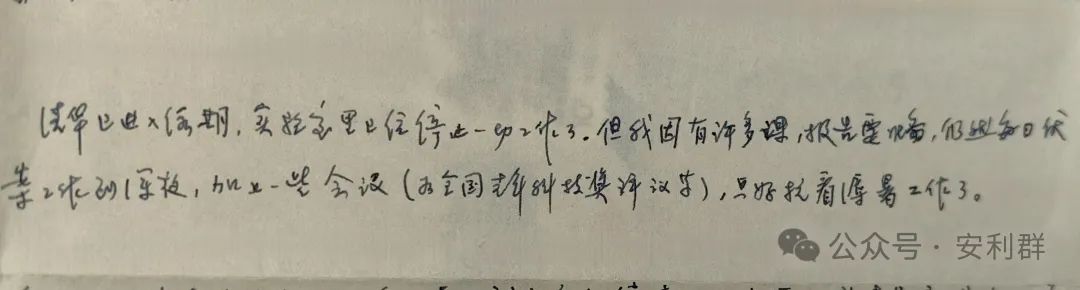 清华已进入假期，实验室里已经停止一切工作了。但我因有许多课，报告要准备，仍然每日伏
案工作到深夜，加上一些会议（如全国青年科技奖评议等），只好抗着厚暑工作了。
公众号·安利群